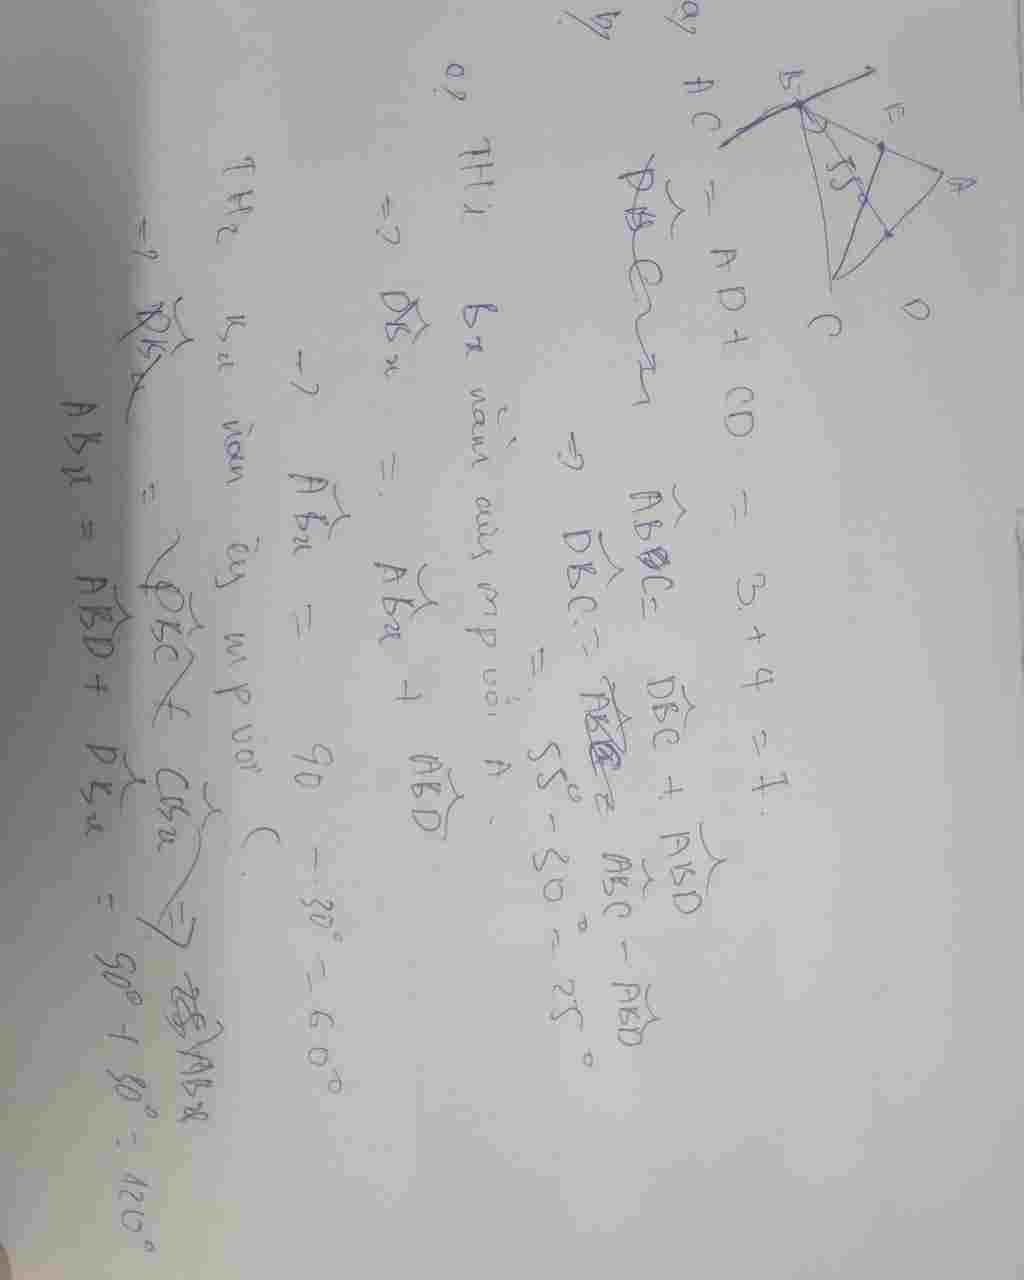 A
E
B
55°
D
C
a, AC = AD + CD = 3 + 4 = 7.
b, ABC = DBC + ABD
=> DBC = ABC - ABD
= 55° - 30° = 25°
c, TH1 Bx nằm cùng mp với A.
=> DBx = ABx + ABD
-> ABx = 90 - 30° = 60°
TH2 Bx nằm cùng mp với C.
=> DBx = DBC + CBx => ABx
ABx = ABD + DBx = 90° + 30° = 120°